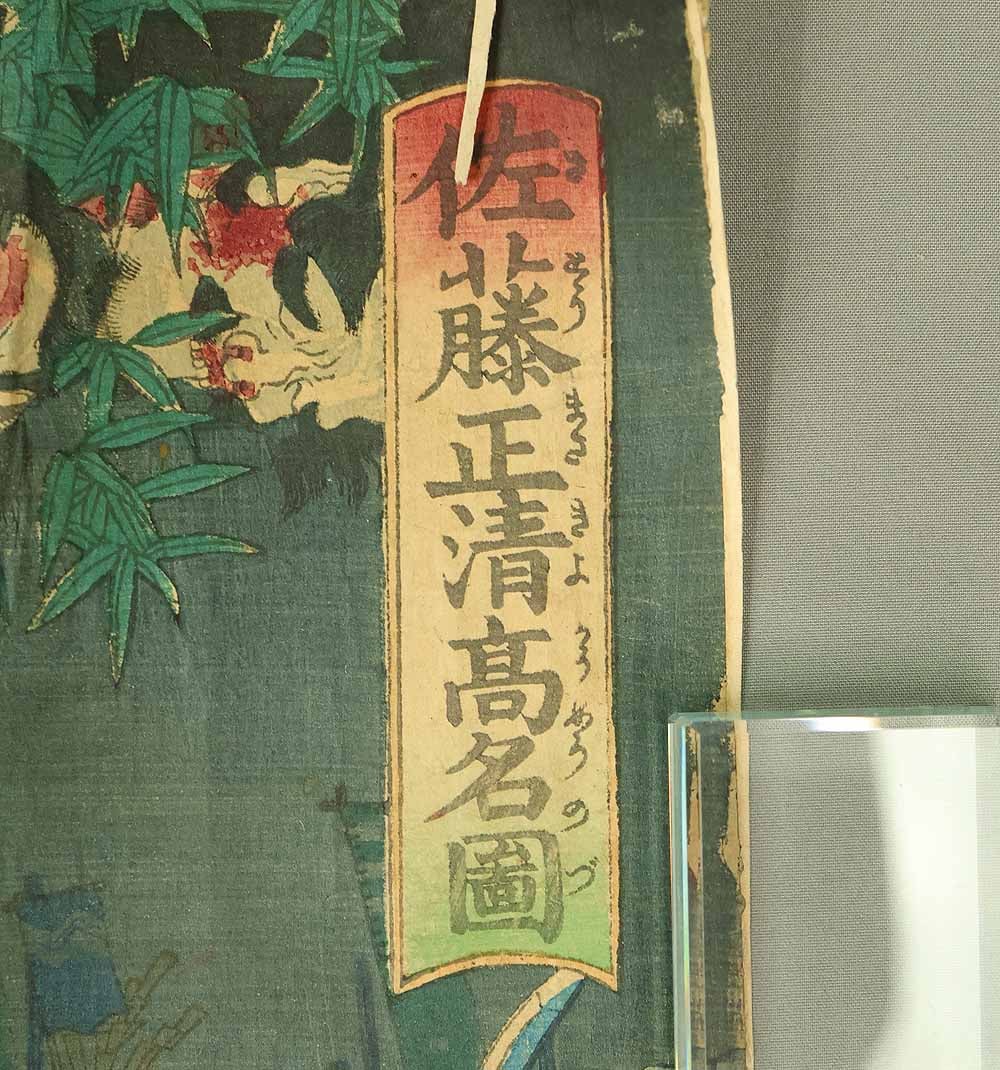 佐藤正清高名圖
さとうまさきよかうめうのづ